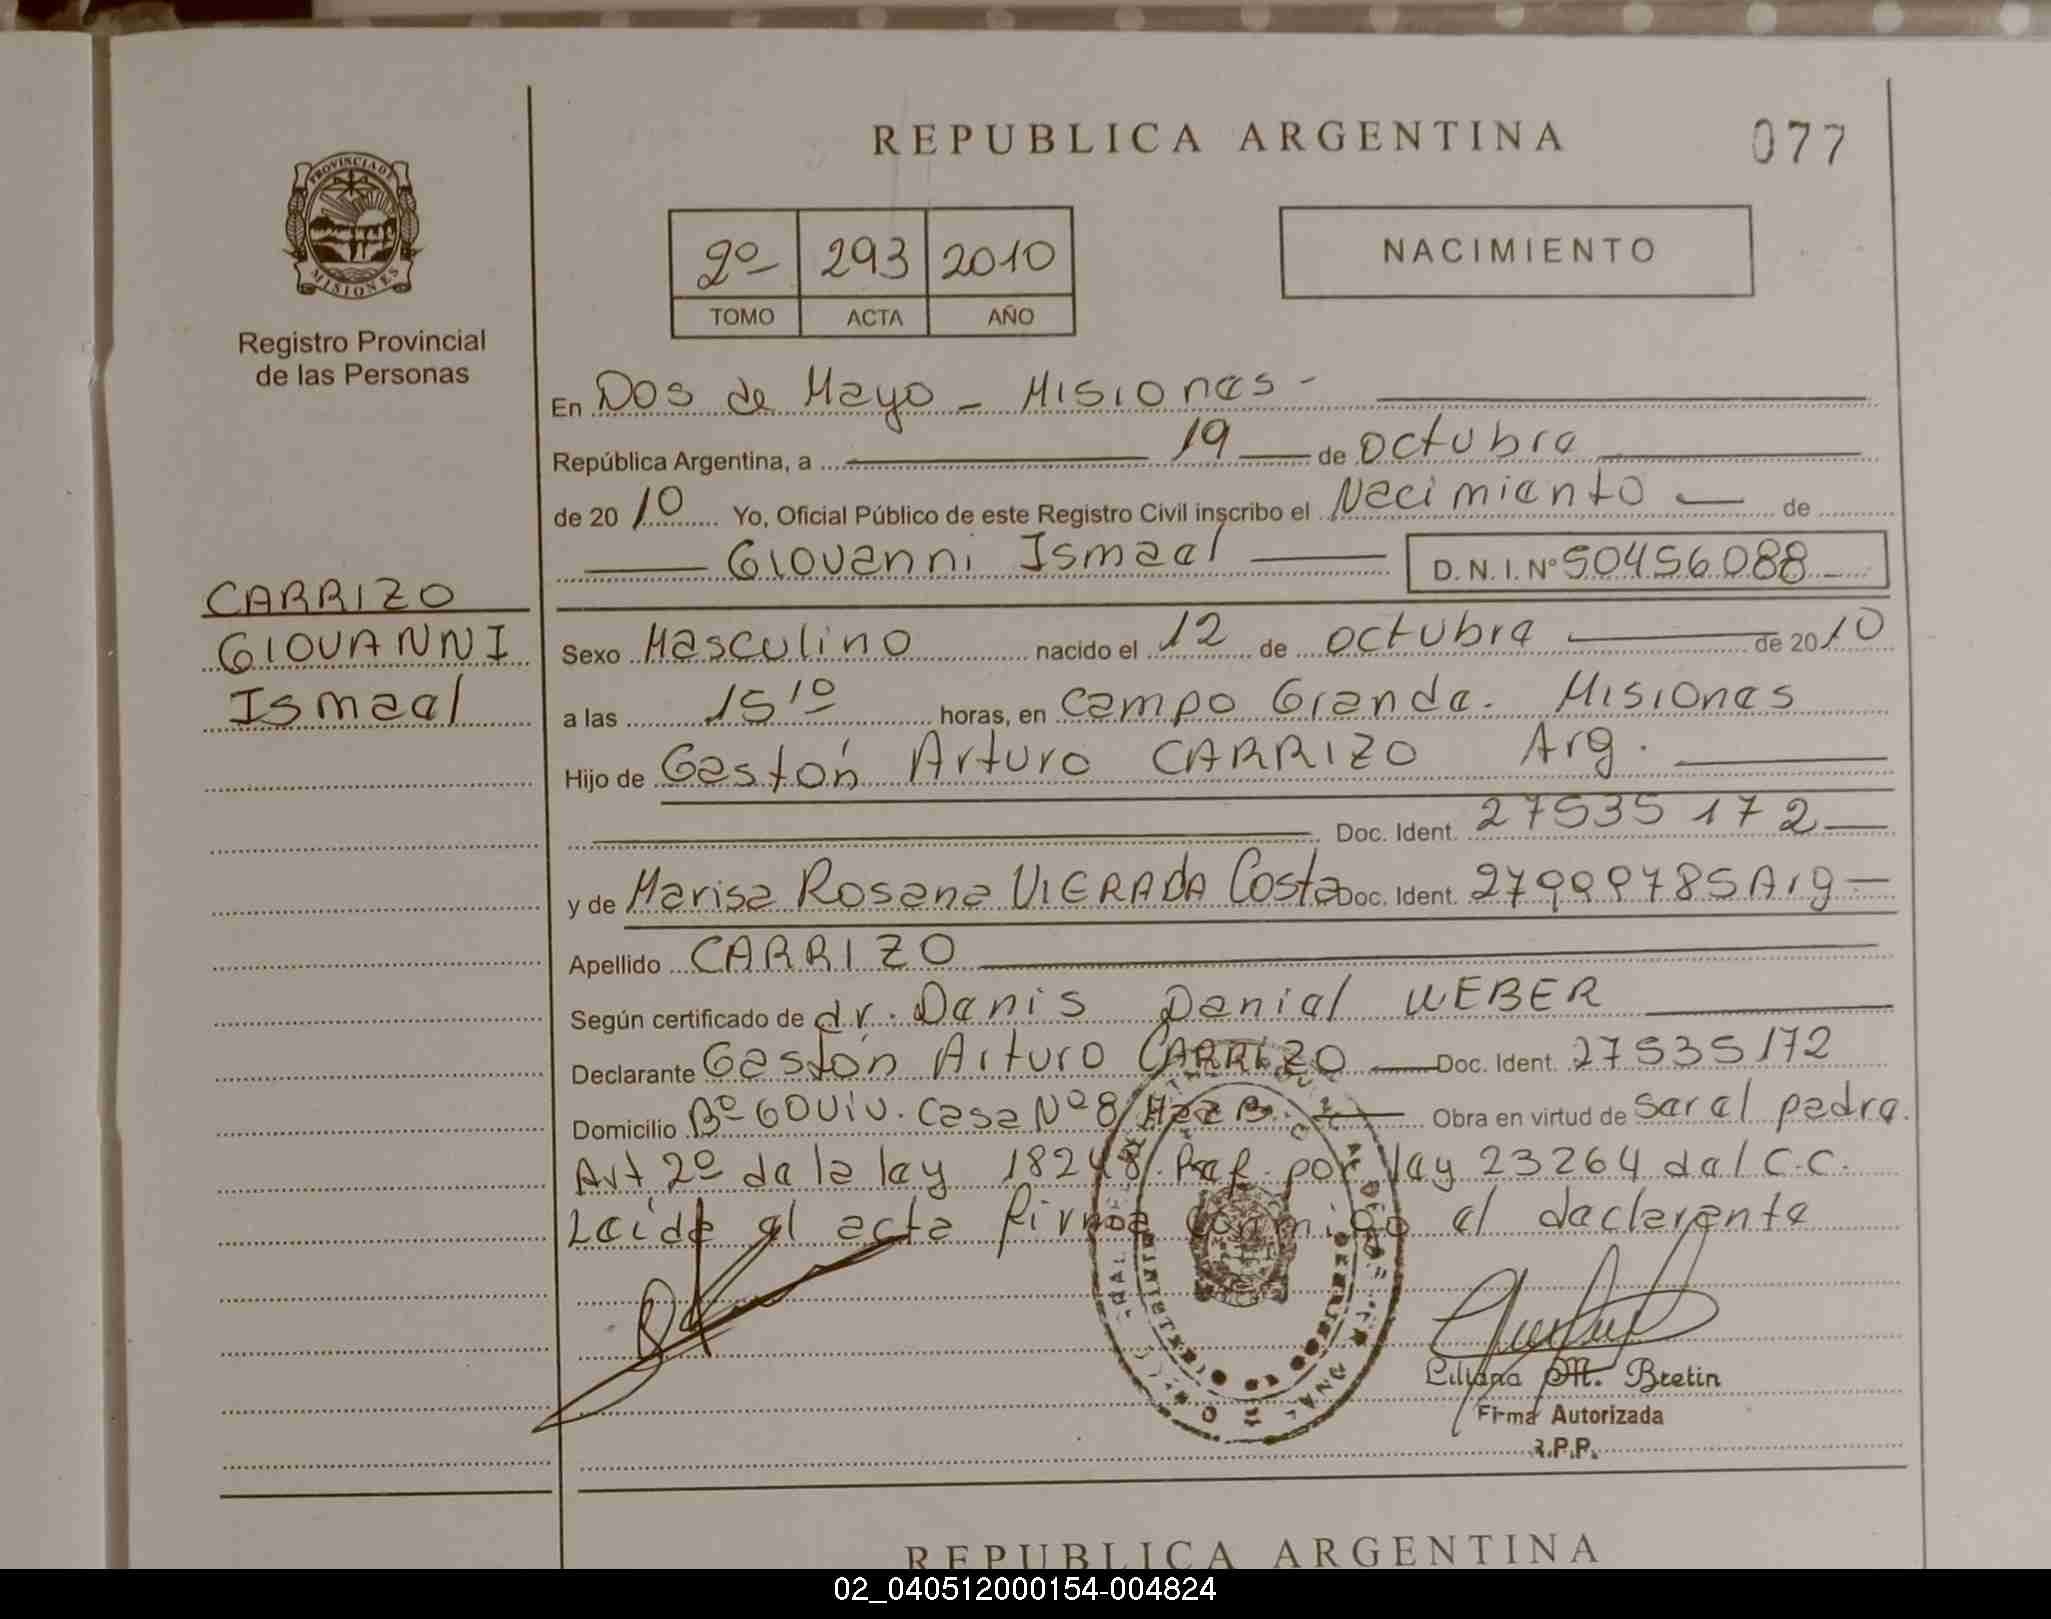 REPUBLICA ARGENTINA
077
PROVINCIA DE
MISIONES
Registro Provincial
de las Personas
2º 293 2010
TOMO ACTA AÑO
NACIMIENTO
CARRIZO
GIOVANNI
Ismael
En Dos de Mayo - Misiones -
República Argentina, a 19 de octubre
de 2010 Yo, Oficial Público de este Registro Civil inscribo el Nacimiento de
Giovanni Ismael D.N.I.Nº 50456088
Sexo Masculino nacido el 12 de octubre de 2010
a las 15 10 horas, en Campo Grande. Misiones
Hijo de Gastón Arturo CARRIZO Arg.
Doc. Ident. 27535172
y de Marisa Rosana VIERA DA Costa Doc. Ident. 27999785 Arg
Apellido CARRIZO
Según certificado de dr. Denis Daniel WEBER
Declarante Gastón Arturo CARRIZO Doc. Ident. 27535172
Domicilio Bº 60 Viv. Casa Nº 8 Obra en virtud de ser el padre.
Art 2º de la ley 18248. Ref. por ley 23264 del C.C.
Leída el acta firma conmigo el declarante
Liliana M. Bretin
Firma Autorizada
R.P.P.
REPUBLICA ARGENTINA
02_040512000154-004824